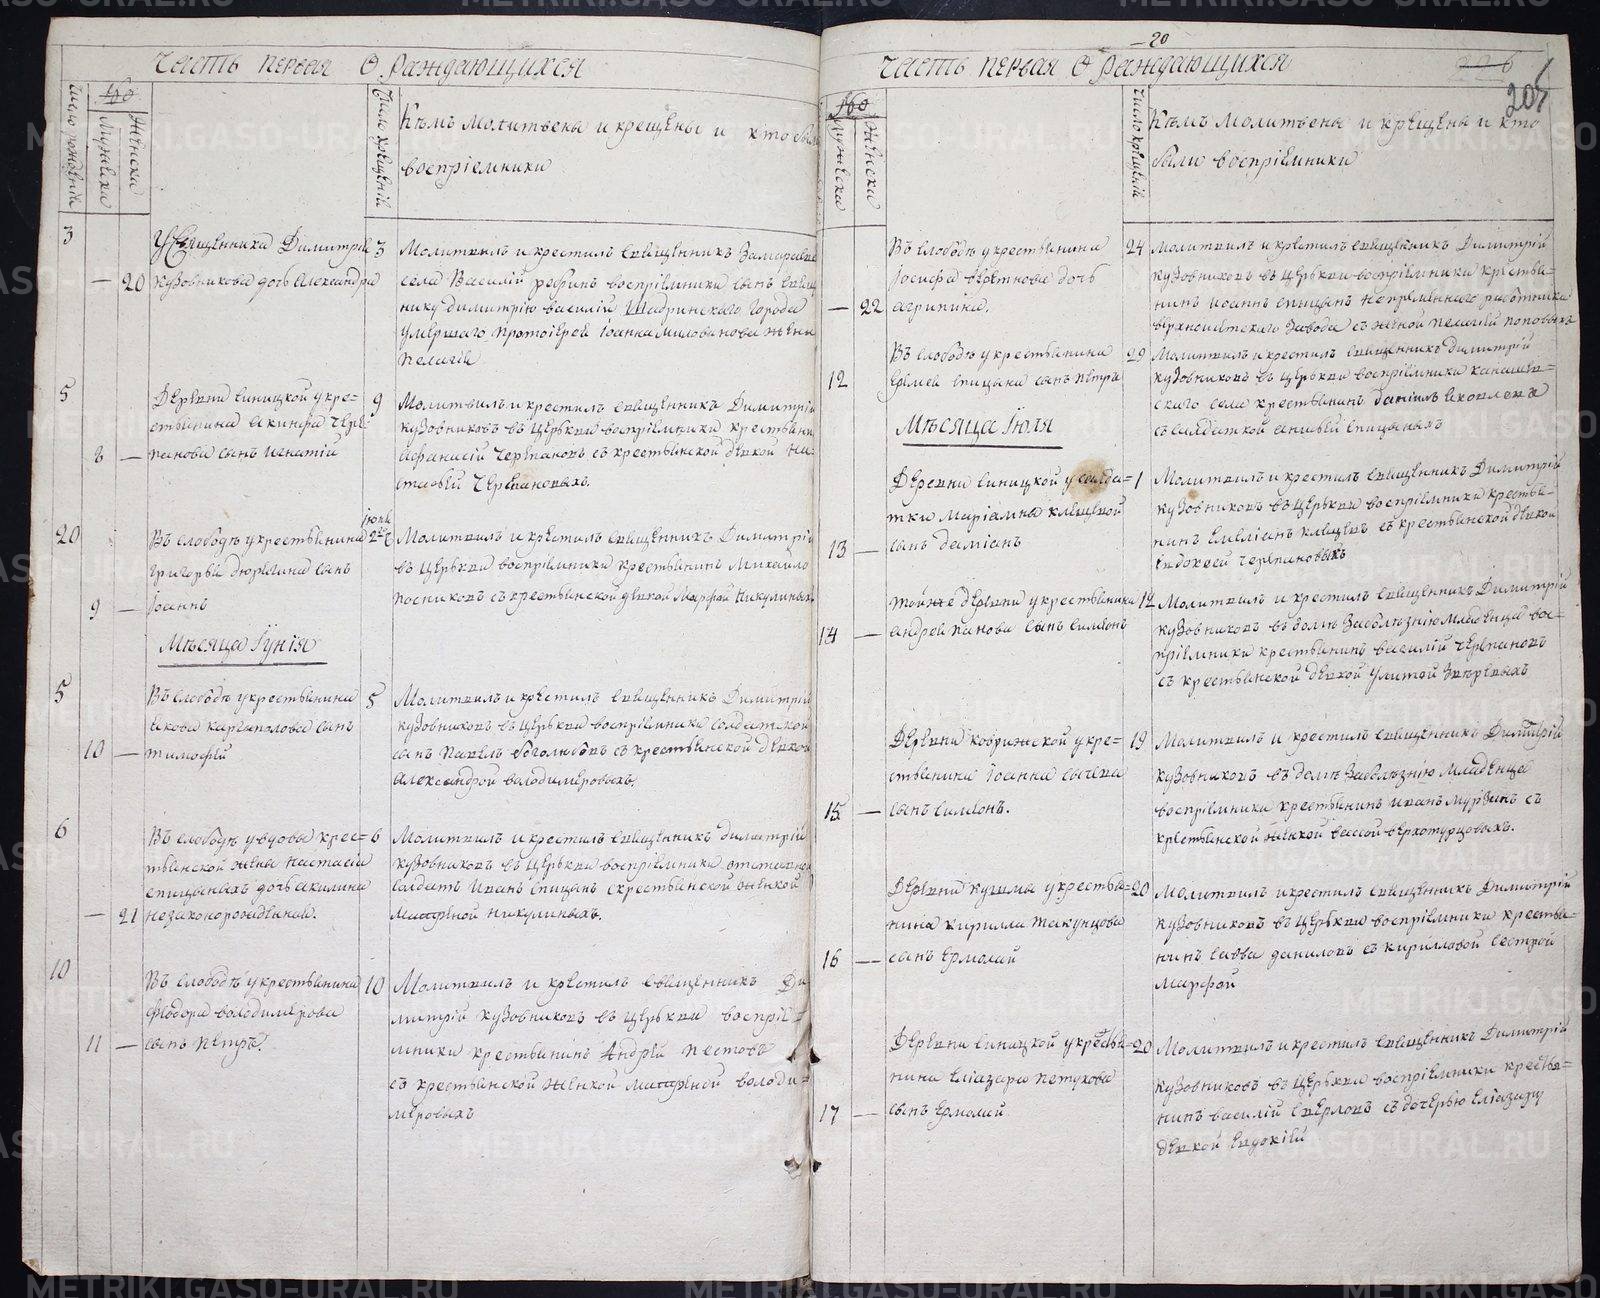 Часть первая О раждающихся
Число рожденій
Мужеска
Женска
Число крещеній
Кѣмъ молитвены и крещены и кто были
воспріемники
3
20
У Священника Димитрія
кузовникова дочь Александра
3
Молитвилъ и крестилъ священникъ
села Василій воспріемники сынъ
нику димитрію василій Шадринскаго города
умершаго протоіерея іоанна жена
пелагія
5
8
Деревни синицкой у кре=
стьянина акинфа чере=
панова сынъ игнатій
9
Молитвилъ и крестилъ священникъ Димитрій
кузовниковъ въ церькви воспріемники крестьянинъ
афанасій черепановъ съ крестьянской дѣвкой на=
стасьей черепановыхъ.
20
9
Въ слободѣ у крестьянина
григорья дюрягина сынъ
Іоаннъ
іюня
2
Молитвилъ и крестилъ священникъ Димитрій
въ церькви воспріемники крестьянинъ Михайло
посниковъ съ крестьянской дѣвкой Марфой Никулиныхъ
Мѣсяца Іунія
5
10
Въ слободѣ у крестьянина
якова каргаполова сынъ
тимофѣй
5
Молитвилъ и крестилъ священникъ Димитрій
кузовниковъ въ церькви воспріемники солдатской
сынъ павелъ боголюбовъ съ крестьянской дѣвкой
александрой володимеровыхъ.
6
21
Въ слободѣ у вдовы крес=
тьянской жены настасьи
спицыныхъ дочь акилина
незаконорожденная.
6
Молитвилъ и крестилъ священникъ димитрій
кузовниковъ въ церькви воспріемники отставной
солдатъ Иванъ спицынъ с крестьянской жонкой
Матреной никулиныхъ.
10
11
Въ слободѣ у крестьянина
Феодора володимерова
сынъ петръ.
10
Молитвилъ и крестилъ священникъ Ди
митрій кузовниковъ въ церькви воспріе=
мники крестьянинъ Андрей пестовъ
съ крестьянской жонкой матреной володи=
меровыхъ
20
Часть первая О раждающихся
205
Мужеска
Женска
Число крещеній
Кѣмъ молитвены и крещены и кто
были воспріемники
22
Въ слободѣ у крестьянина
Іосифа веретнова дочь
агрипина.
24
Молитвилъ и крестилъ священникъ Димитрій
кузовниковъ въ церькви воспріемники крестья=
нинъ іоаннъ спицынъ непременнаго работника
верхнеисетскаго завода съ женой пелагіей поповыхъ
12
Въ слободѣ у крестьянина
еремея спицына сынъ петръ
29
Молитвилъ и крестилъ священникъ димитрій
кузовниковъ въ церькви воспріемники
скаго села крестьянинъ даніилъ яковлевъ
съ салдаткой спицыныхъ
Мѣсяца Іюля
13
Деревни синицкой у салда=
тки маріамны клещевой
сынъ даміанъ
1
Молитвилъ и крестилъ священникъ Димитрій
кузовниковъ въ церькви воспріемники крестья=
нинъ емеліанъ клещевъ съ крестьянской дѣвкой
евдокеей черепановыхъ
14
той же деревни у крестьянина
андрея панова сынъ симеонъ
12
Молитвилъ и крестилъ священникъ Димитрій
кузовниковъ въ домѣ за болѣзнію младенца вос=
пріемники крестьянинъ василій черепановъ
съ крестьянской дѣвкой улитой
15
Деревни коврижской у кре=
стьянина іоанна сычева
сынъ симеонъ.
19
Молитвилъ и крестилъ священникъ Димитрій
кузовниковъ въ домѣ за болѣзнію младенца
воспріемники крестьянинъ иванъ мурзинъ съ
крестьянской жонкой вассой верхотурцовыхъ.
16
Деревни кушмы у крестья=
нина кирилла такунцова
сынъ ермолай
20
Молитвилъ и крестилъ священникъ Димитрій
кузовниковъ въ церькви воспріемники крестья=
нинъ савва даниловъ съ кирилловой сестрой
марфой
17
Деревни синицкой у крестья=
нина еліазара петухова
сынъ ермолай
20
Молитвилъ и крестилъ священникъ Димитрій
кузовниковъ въ церькви воспріемники крестья=
нинъ василій сверловъ съ дочерью еліазара
дѣвкой евдокіей
METRIKI.GASO-URAL.RU